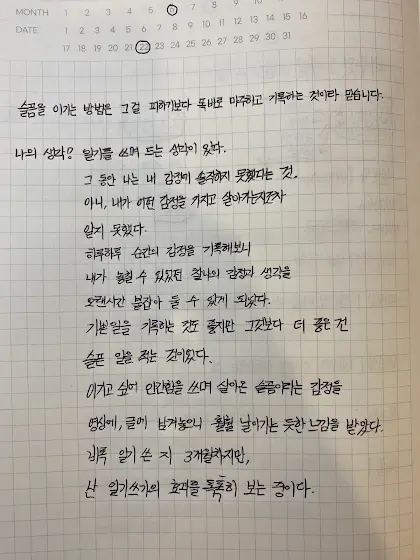 MONTH 1 2 3 4 5 6 7 8 9 10
DATE 1 2 3 4 5 6 7 8 9 10 11 12 13 14 15 16
17 18 19 20 21 22 23 24 25 26 27 28 29 30 31
슬픔을 이기는 방법은 그걸 피하기보다 똑바로 마주하고 기록하는 것이라 믿습니다.
나의 생각? 일기를 쓰며 드는 생각이 있다.
그 동안 나는 내 감정에 솔직하지 못했다는 것.
아니, 내가 어떤 감정을 가지고 살아가는지조차
알지 못했다.
하루하루 순간의 감정을 기록해보니
내가 놓칠 수 있었던 찰나의 감정과 생각을
오랜시간 붙잡아 둘 수 있게 되었다.
기쁜일을 기록하는 것도 좋지만 그것보다 더 좋은 건
슬픈 일을 적는 것이었다.
이기고 싶어 안간힘을 쓰며 살아온 슬픔이라는 감정을
영상에, 글에 남겨놓으니 훨훨 날아가는 듯한 느낌을 받았다.
비록 일기 쓴 지 3개월차지만,
난 일기쓰기의 효과를 톡톡히 보는 중이다.